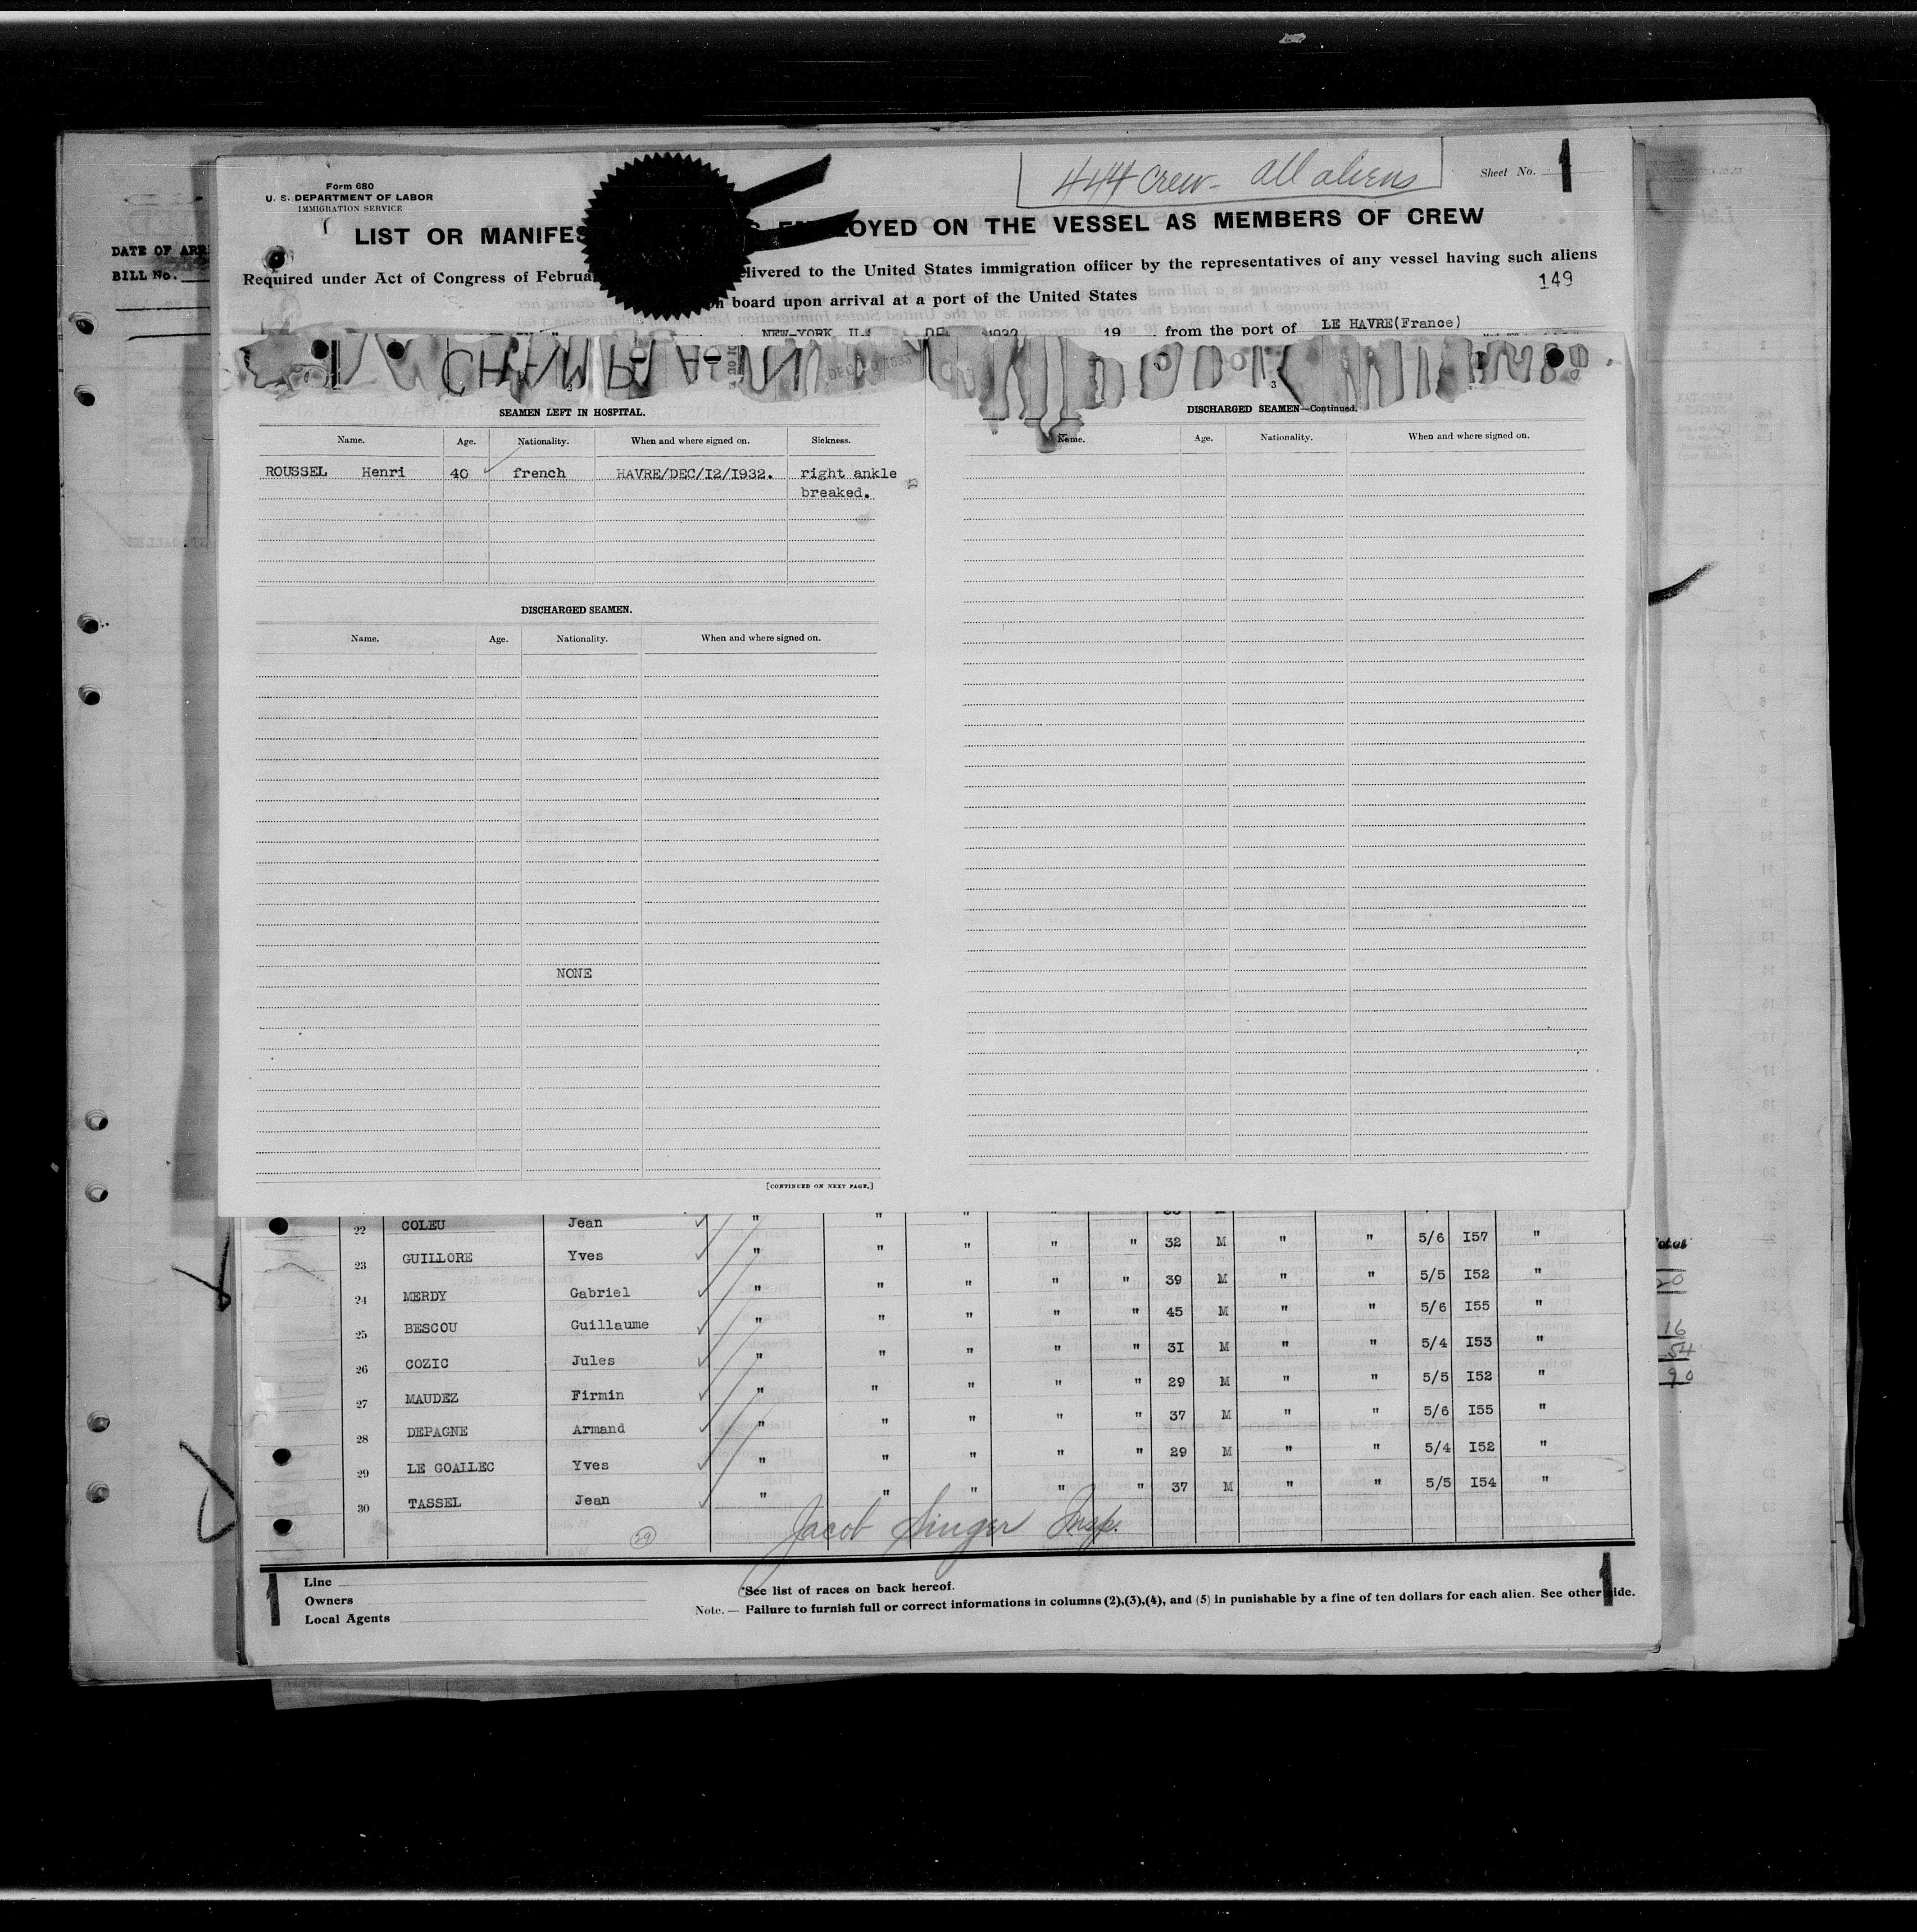 444 Crew - All aliens
Sheet No. 1
Form 680
U. S. DEPARTMENT OF LABOR
IMMIGRATION SERVICE
LIST OR MANIFES EMPLOYED ON THE VESSEL AS MEMBERS OF CREW
DATE OF ARR
BILL No.
Required under Act of Congress of Februa elivered to the United States immigration officer by the representatives of any vessel having such aliens
on board upon arrival at a port of the United States
149
NEW-YORK 19 , from the port of LE HAVRE(France)
CHAMPLAIN
2
3
SEAMEN LEFT IN HOSPITAL.
Name. Age. Nationality. When and where signed on. Sickness.
ROUSSEL Henri 40 french HAVRE/DEC/I2/I932. right ankle
breaked.
DISCHARGED SEAMEN.
Name. Age. Nationality. When and where signed on.
NONE
[CONTINUED ON NEXT PAGE.]
DISCHARGED SEAMEN—Continued.
Name. Age. Nationality. When and where signed on.
22 COLEU Jean " " " "
23 GUILLORE Yves " " " " " 32 M " " 5/6 I57 "
24 MERDY Gabriel " " " " " 39 M " " 5/5 I52 "
25 BESCOU Guillaume " " " " " 45 M " " 5/6 I55 "
26 COZIC Jules " " " " " 3I M " " 5/4 I53 "
27 MAUDEZ Firmin " " " " " 29 M " " 5/5 I52 "
28 DEPAGNE Armand " " " " " 37 M " " 5/6 I55 "
29 LE GOALLEC Yves " " " " " 29 M " " 5/4 I52 "
30 TASSEL Jean " " " " " 37 M " " 5/5 I54 "
29
Jacob Singer Insp.
1
Line
Owners
Local Agents
*See list of races on back hereof.
Note. — Failure to furnish full or correct informations in columns (2),(3),(4), and (5) in punishable by a fine of ten dollars for each alien. See other side.
1
16
54
90